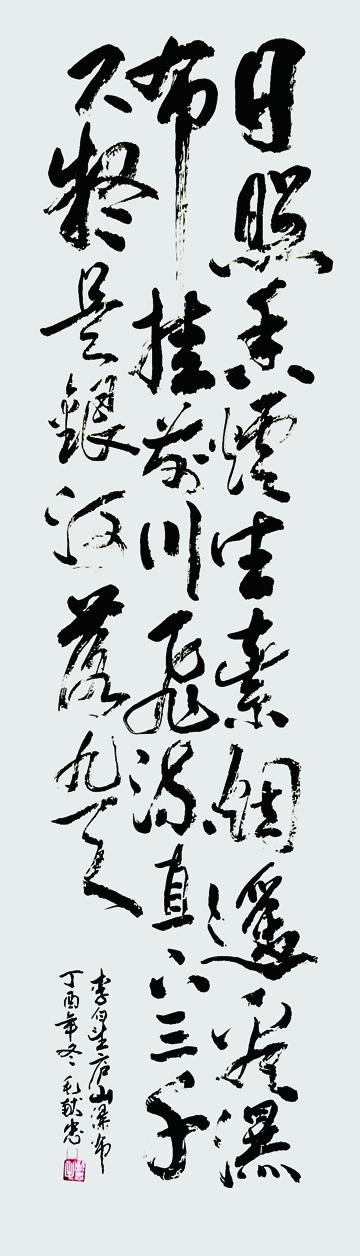 日照香爐生紫烟遥看瀑
布挂前川飛流直下三千
尺疑是銀河落九天
李白望庐山瀑布
丁酉年冬毛忠